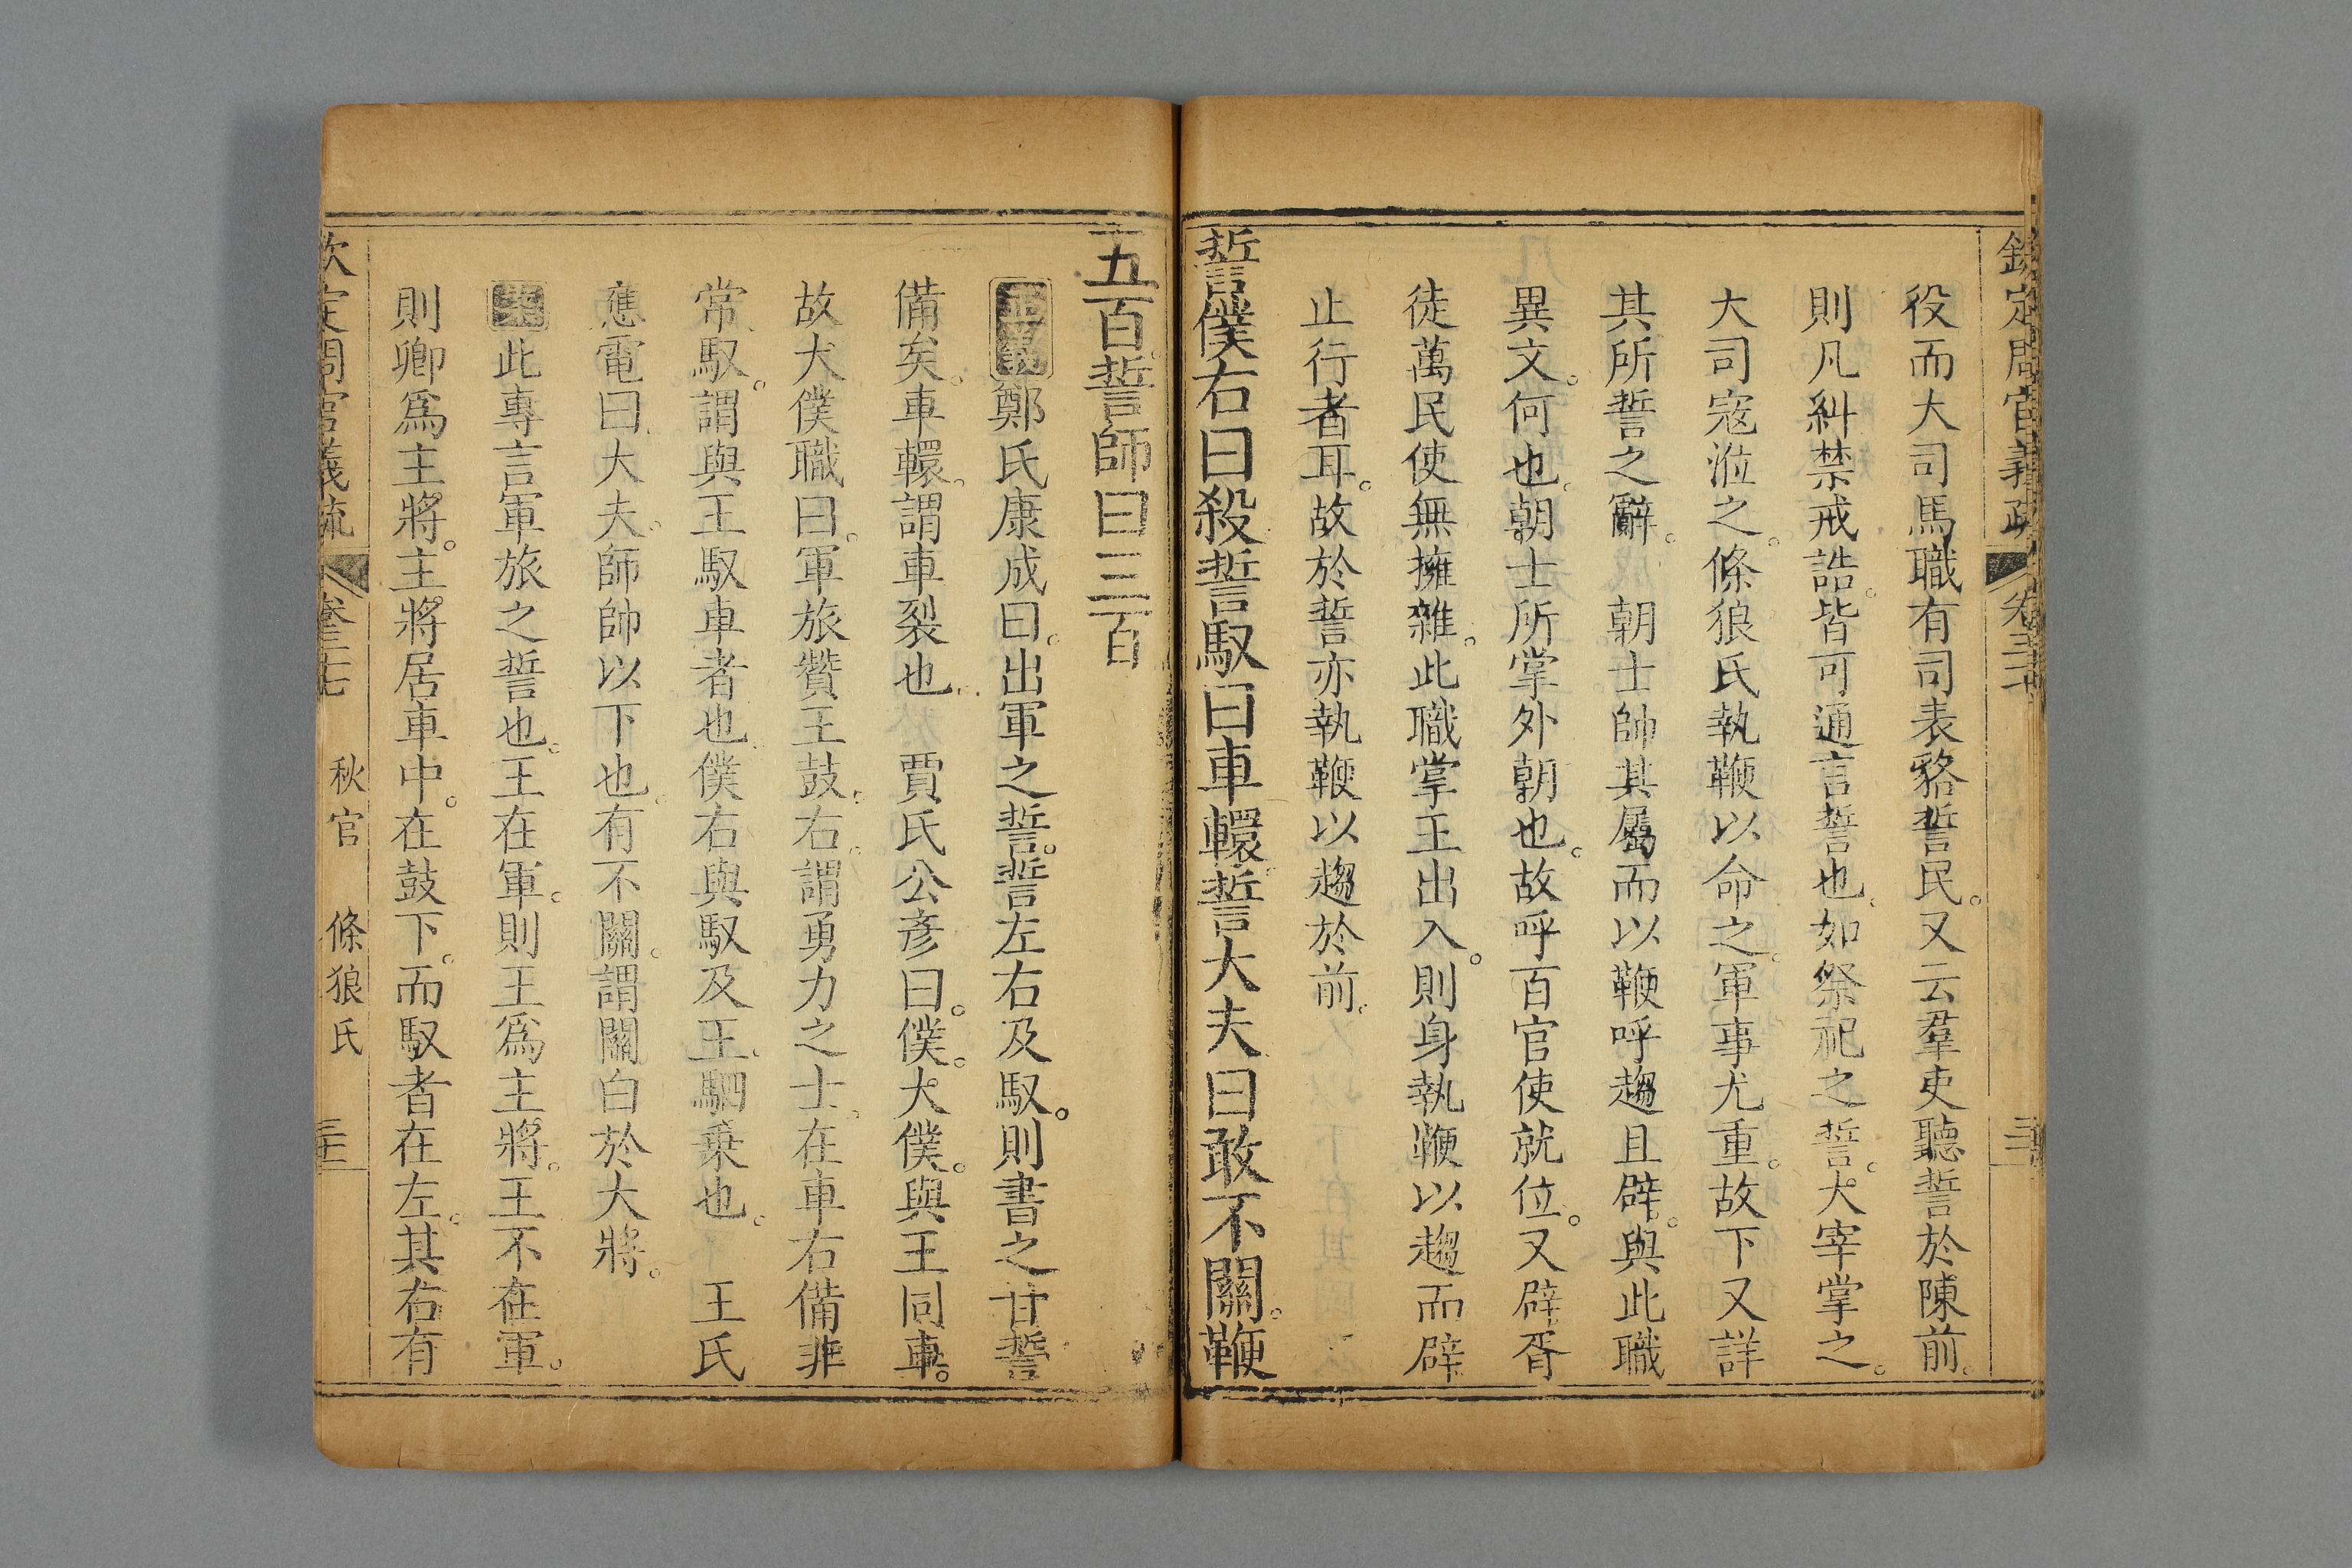 欽定周官義疏 卷三十七
役而大司馬職有司表貉誓民。又云羣吏聽誓於陳前。
則凡糾禁戒誥。皆可通言誓也。如祭祀之誓。大宰掌之。
大司寇涖之。條狼氏執鞭以命之。軍事尤重。故下又詳
其所誓之辭。 朝士帥其屬而以鞭呼趨且辟。與此職
異文。何也。朝士所掌外朝也。故呼百官使就位。又辟胥
徒萬民使無擁雜。此職掌王出入。則身執鞭以趨而辟
止行者耳。故於誓亦執鞭以趨於前。
誓僕右曰殺誓馭曰車轘誓大夫曰敢不關。鞭
五百誓師曰三百
正義鄭氏康成曰。出軍之誓。誓左右及馭。則書之甘誓
備矣。車轘。謂車裂也。 賈氏公彦曰。僕。大僕。與王同車。
故大僕職曰。軍旅贊王鼓。右。謂勇力之士。在車右備非
常。馭。謂與王馭車者也。僕右與馭及王。駟乗也。 王氏
應電曰。大夫。師帥以下也。有不關。謂關白於大將。
此專言軍旅之誓也。王在軍。則王爲主將。王不在軍。
則卿爲主將。主將居車中。在鼓下。而馭者在左。其右有
欽定周官義疏 卷三十七 秋官 條狼氏